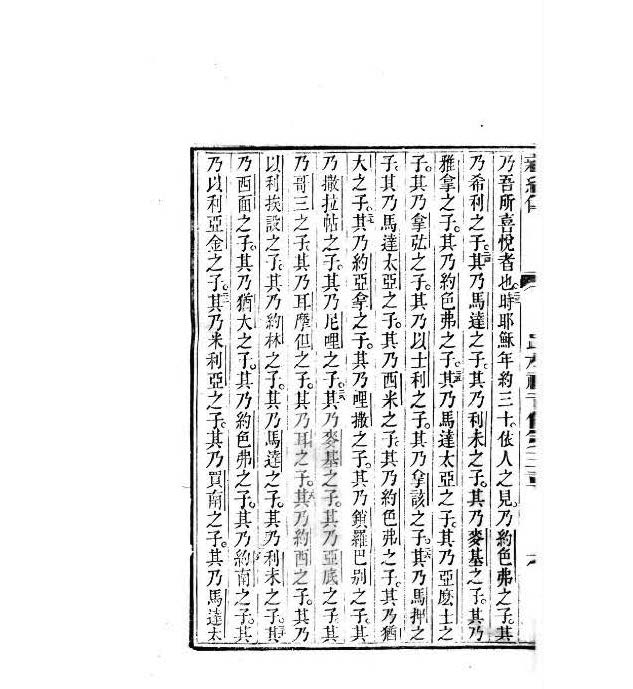 乃吾所喜悅者也。時耶穌年約三十。依人之見。乃約色弗之子。其
乃希利之子。其乃馬達之子。其乃利未之子。其乃麥基之子。其乃
雅拿之子。其乃約色弗之子。其乃馬達太亞之子。其乃亞麽士之
子。其乃拿弘之子。其乃以士利之子。其乃拿該之子。其乃馬押之
子。其乃馬達太亞之子。其乃西米之子。其乃約色弗之子。其乃猶
大之子。其乃約亞拿之子。其乃哩撒之子。其乃鎖羅巴别之子。其
乃撒拉帖之子。其乃尼哩之子。其乃麥基之子。其乃亞底之子。其
乃哥三之子。其乃耳摩但之子。其乃耳之子。其乃約西之子。其乃
以利挨設之子。其乃約林之子。其乃馬達之子。其乃利未之子。其
乃西面之子。其乃猶大之子。其乃約色弗之子。其乃約南之子。其
乃以利亞金之子。其乃米利亞之子。其乃買南之子。其乃馬達太